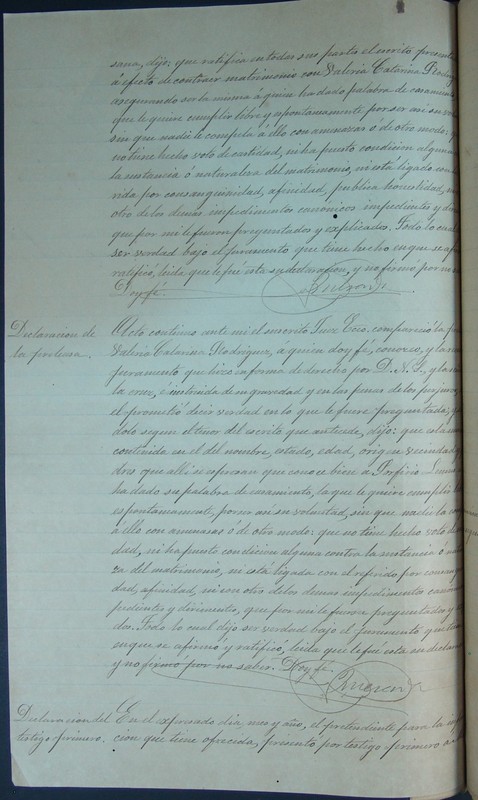 sana, dijo: que ratifica en todas sus partes el escrito presente
á efecto de contraer matrimonio con Valeria Catarina Rodrig
asegurando ser la misma á quien ha dado palabra de casamiento
que le quiere cumplir libre y espontaneamente por ser asi su vo
sin que nadie le compela a ello con amenazas ó de otro modo: q
no tiene hecho voto de castidad, ni ha puesto condicion alguna
la sustancia ó naturaleza del matrimonio, ni está ligado con
rida por consanguinidad, afinidad, publica honestidad, ni
otro de los demas impedimentos canónicos impedientes y di
que por mi le fueron preguntados y explicados. Todo lo cual
ser verdad bajo el juramento que tiene hecho en que se afi
ratificó, leida que le fue esta su declaracion, y no firmó por no
Doy fé.
Declaracion de
la pretensa.
Acto continuo ante mi el inscrito Juez Ecco. compareció la p
Valeria Catarina Rodriguez, á quien doy fé, conozco, y la
juramento que hizo en forma de derecho por D. N. S. y la se
la cruz, é instruida de su gravedad y en las penas de los perjuros
el prometió decir verdad en lo que le fuere preguntada; y
dolo segun el tenor del escrito que antecede, dijo: que es la
contenida en el del nombre, estado, edad, origen vecindad y
dres que alli se expresan que conoce bien a Porfirio
ha dado su palabra de casamiento, la que le quiere cumplir
espontaneament, por ser asi su voluntad, sin que nadie la co
a ello con amenazas ó de otro modo: que no tiene hecho voto de
dad, ni ha puesto condicion alguna contra la sustancia o na
za del matrimonio, ni está ligada con el referido por consang
dad, afinidad, ni con otro de los demas impedimentos canon
pedientes y dirimentes, que por mi le fueron preguntados y
dos. Todo lo cual dijo ser verdad bajo el juramento que
en que se afirmó y ratificó, leida que le fue esta su declara
y no firmó por no saber. Doy fé.
Declaracion del
testigo primero.
En el expresado dia, mes y año, el pretendiente para la in
cion que tiene ofrecida, presentó por testigo primero a